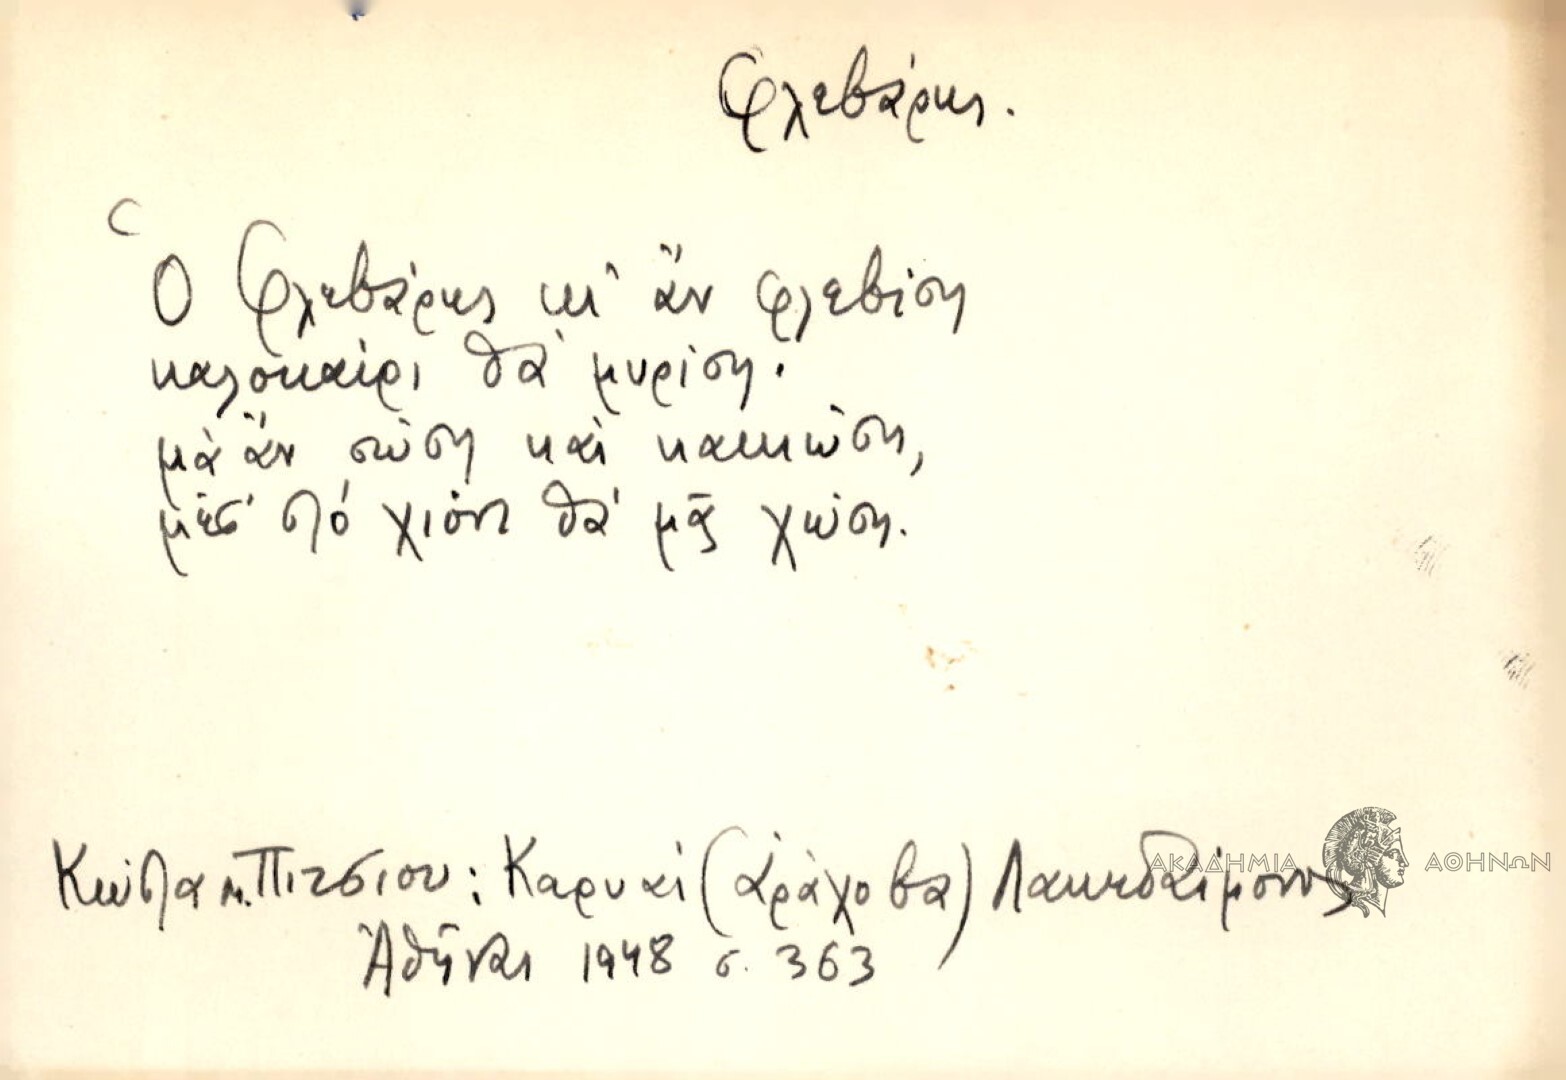 Φλεβάρης.
Ὁ Φλεβάρης κι' ἂν φλεβίση
καλοκαίρι θὰ μυρίση·
μὰ ἂν σώση καὶ κακιώση,
μὲσ' στό χιόνι θὰ μᾶς χώση.
Κώστα Μ. Πίτσιου: Καρυαί (Ἀράχοβα) Λακεδαίμονος
ΑΚΑΔΗΜΙΑ ΑΘΗΝΩΝ
Ἀθῆναι 1948 σ. 363